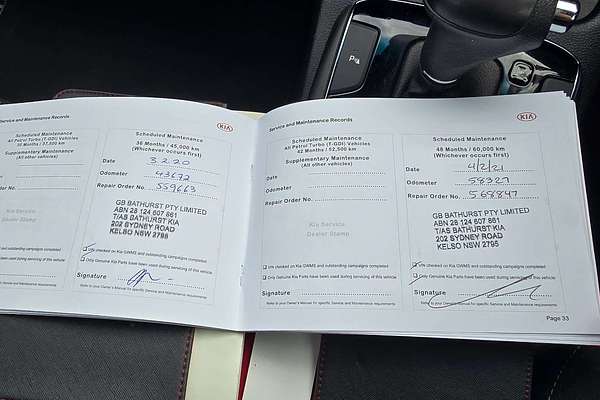 Service and Maintenance Records
KIA
Scheduled Maintenance
All Petrol Turbo (T-GDI) Vehicles
30 Months / 37,500 km
Supplementary Maintenance
(All other vehicles)
Kia Service
Dealer Stamp
GWMS and outstanding campaigns completed
Parts have been used during servicing of this vehicle
Owner's Manual for specific Service and Maintenance requirements
Scheduled Maintenance
36 Months / 45,000 km
(Whichever occurs first)
Date 3.2.20
Odometer 43672
Repair Order No. 559663
GB BATHURST PTY LIMITED
ABN 28 124 607 861
T/AS BATHURST KIA
202 SYDNEY ROAD
KELSO NSW 2795
We checked on Kia GWMS and outstanding campaigns completed
Only Genuine Kia Parts have been used during servicing of this vehicle
Signature
Refer to your Owner's Manual for specific Service and Maintenance requirements
Service and Maintenance Records
KIA
Scheduled Maintenance
All Petrol Turbo (T-GDI) Vehicles
42 Months / 52,500 km
Supplementary Maintenance
(All other vehicles)
Date
Odometer
Repair Order No.
Kia Service
Dealer Stamp
We checked on Kia GWMS and outstanding campaigns completed
Only Genuine Kia Parts have been used during servicing of this vehicle
Signature
Refer to your Owner's Manual for specific Service and Maintenance requirements
Scheduled Maintenance
48 Months / 60,000 km
(Whichever occurs first)
Date 4/2/21
Odometer 58327
Repair Order No. 568847
GB BATHURST PTY LIMITED
ABN 28 124 607 861
T/AS BATHURST KIA
202 SYDNEY ROAD
KELSO NSW 2795
We checked on Kia GWMS and outstanding campaigns completed
Only Genuine Kia Parts have been used during servicing of this vehicle
Signature
Refer to your Owner's Manual for specific Service and Maintenance requirements
Page 33